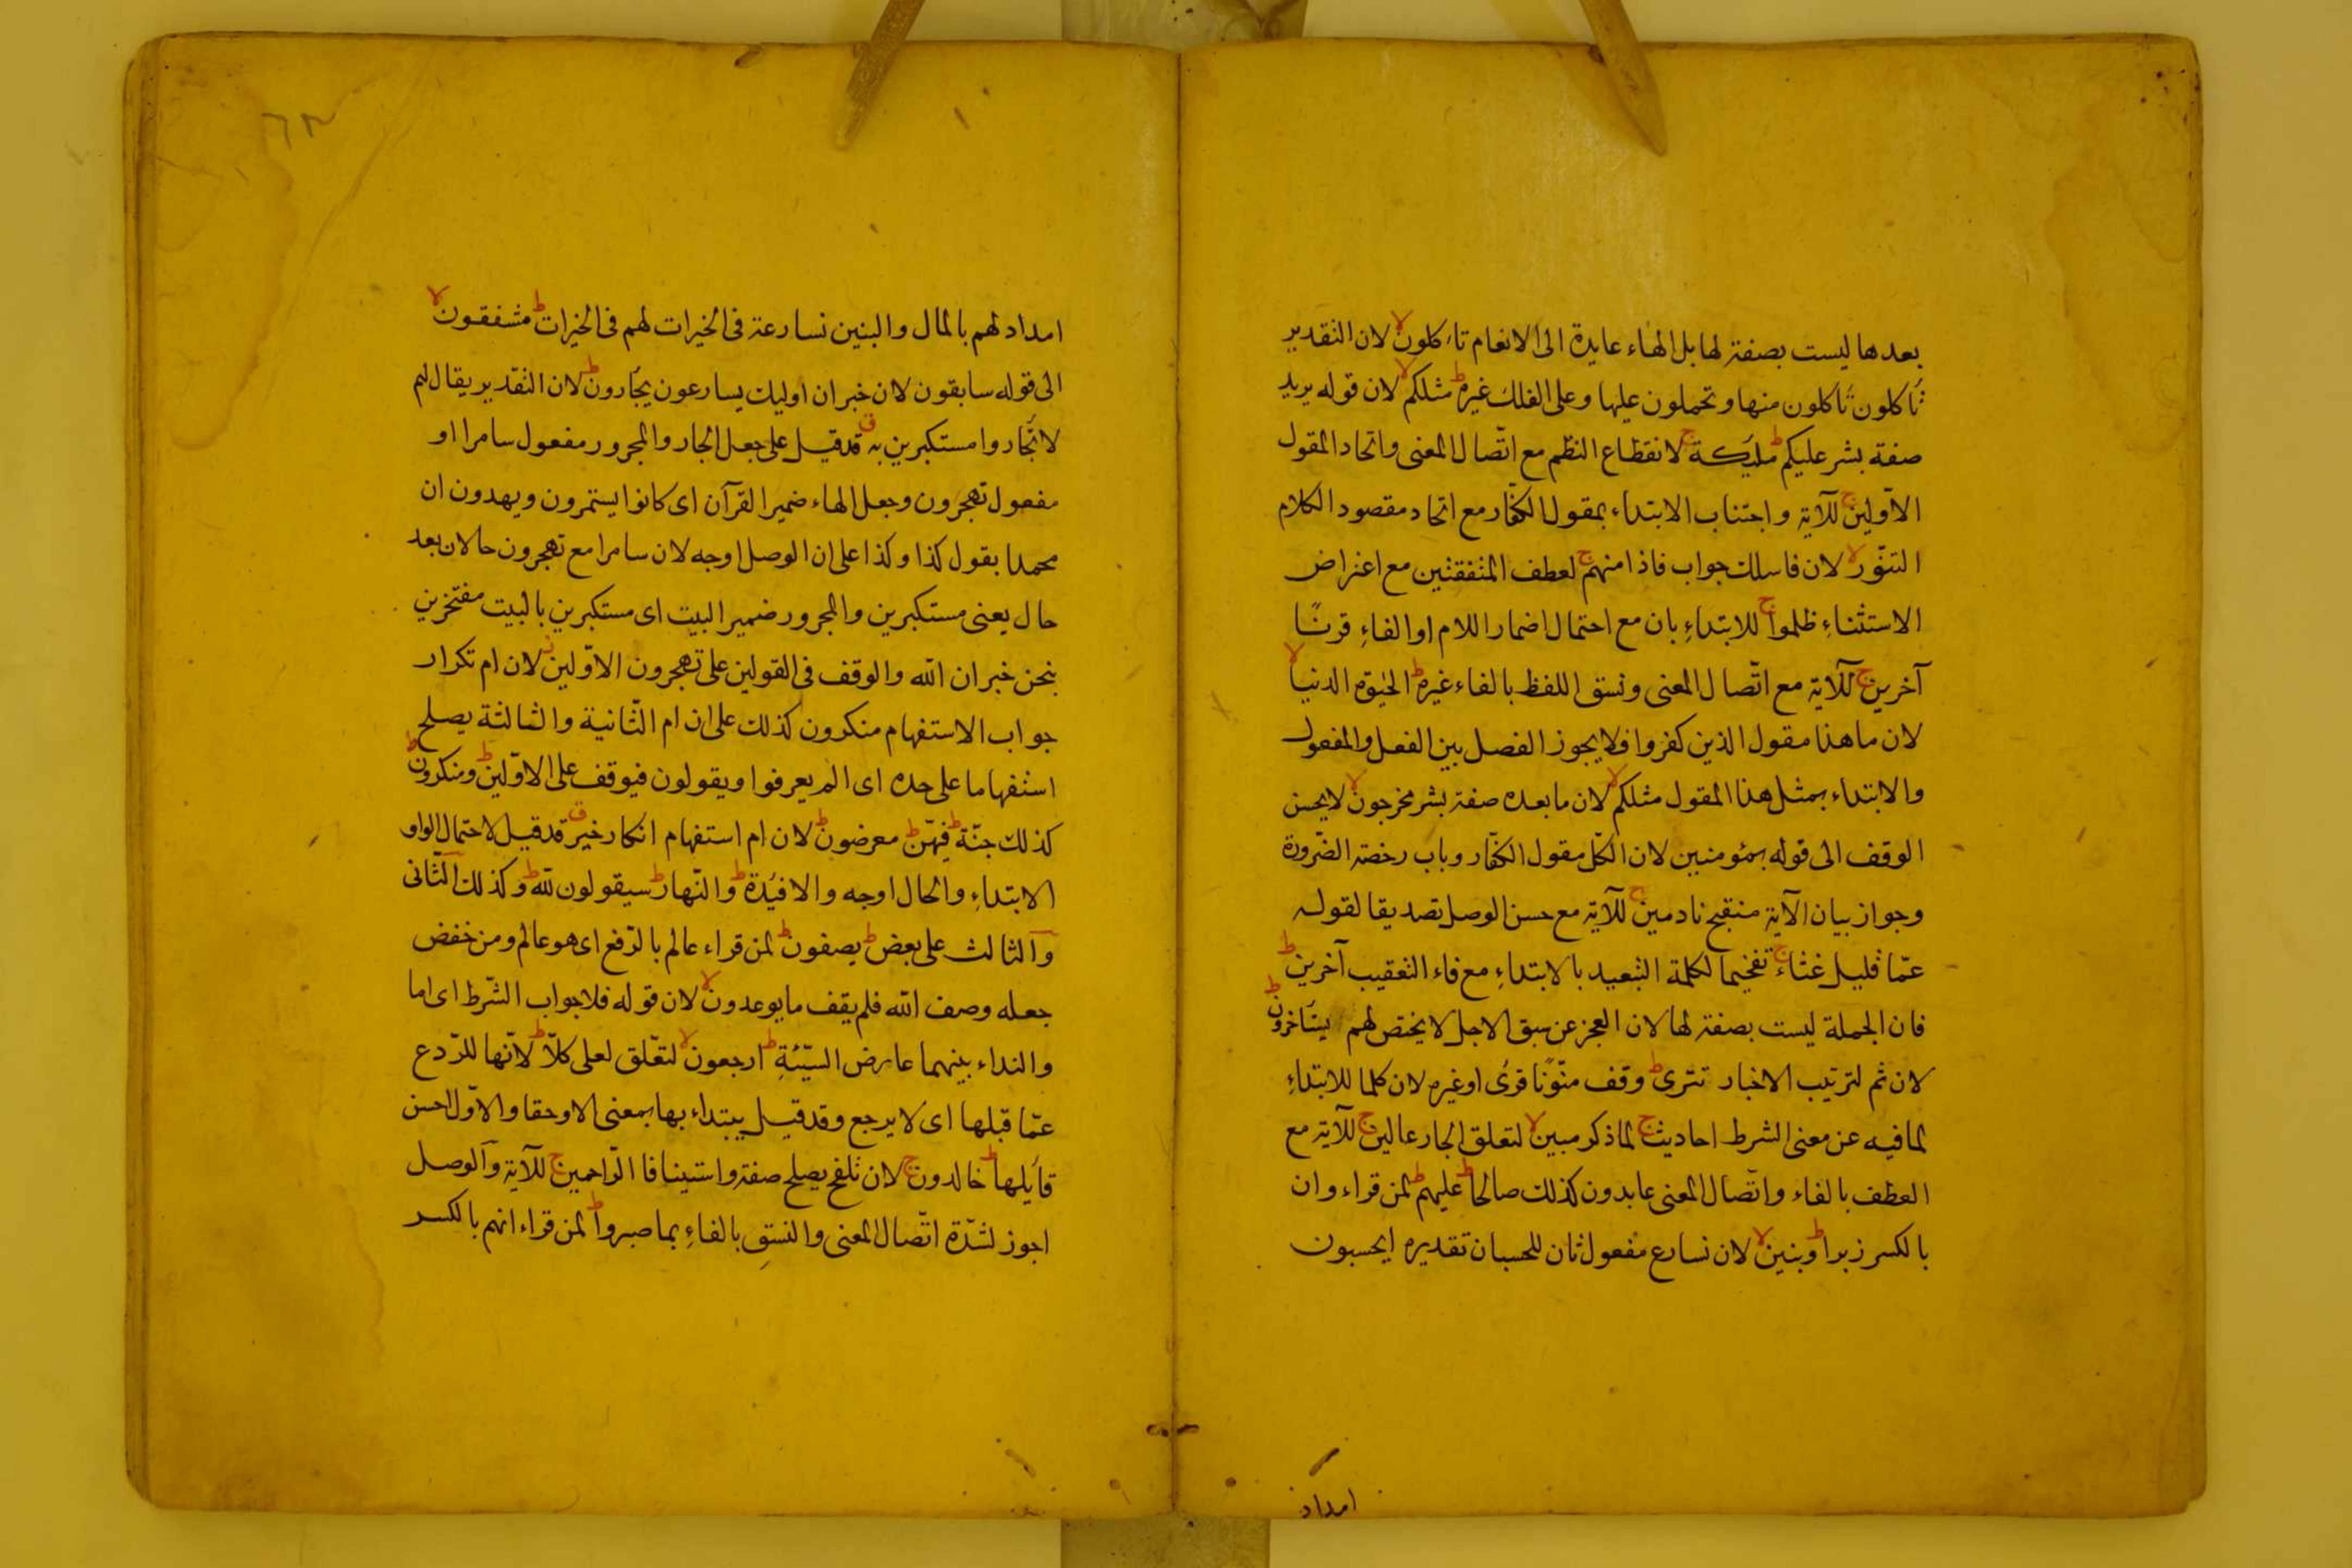 بعدها ليست بصفة لها بل الهاء عايدة الى الانعام تاكلون لا لان التقدير
تأكلون تأكلون منها وتحملون عليها وعلى الفلك غيره ط مثلكم لا لان قوله يريد
صفة بشر عليكم ط ملئكة ج لانقطاع النظم مع اتّصال المعنى واتحاد المقول
الاوّلين ج للآية واجتناب الابتداء بمقول الكفّار مع اتحاد مقصود الكلام
التنّور لا لان فاسلك جواب فاذا منهم ج لعطف المتفقتين مع اعتراض
الاستثناءِ ظلموا ج للابتداءِ بان مع احتمال اضمار اللام او الفاءِ قرنًا
آخرين ج للآية مع اتّصال المعنى ونسق اللفظ بالفاء غيره ط الحيوة الدنيا لا
لان ما هذا مقول الذين كفروا فلا يجوز الفصل بين الفعل والمفعول
والابتداء بمثل هذا المقول مثلكم لا لان ما بعده صفة بشر مخرجون لا لا يحسن
الوقف الى قوله بمئومنين لان الكلّ مقول الكفّار وباب رخصة الضّرورة
وجواز بيان الآية منقبح نادمين ج للآية مع حسن الوصل تصديقا لقوله
عمّا قليل غثاء ج تفخيما لكلمة التبعيد بالابتداءِ مع فاء التعقيب آخرين ط
فان الجملة ليست بصفة لها لان العجز عن سبق الاجل لا يختص لهم يستأخرون ط
لان ثم لترتيب الاخبار تترى ط وقف منّونًا قرئ او غيره لان كلما للابتداءِ
لما فيه عن معنى الشرط احاديث ج لما ذكر مبين لا لتعلق الجار عالين ج للآية مع
العطف بالفاء واتّصال المعنى عابدون كذلك صالحا ط عليهم ط لمن قراء وان
بالكسر زبرا ط وبنين لا لان نسارع مفعول ثان للحسبان تقديره ايحسبون
امداد
امداد لهم بالمال والبنين نسارعة فى الخيرات لهم فى الخيرات ط مشفقون لا
الى قوله سابقون لان خبر ان اوليك يسارعون يجارون ط لان التقدير يقال لهم
لا تجاروا مستكبرين به ق قد قيل على جعل الجار والمجرور مفعول سامرا او
مفعول تهجرون وجعل الهاء ضمير القرآن اى كانوا يستمرون ويهدون ان
محمدا بقول كذا وكذا على ان الوصل اوجه لان سامرا مع تهجرون حالان بعد
حال يعنى مستكبرين والمجرور ضمير البيت اى مستكبرين بالبيت مفتخرين
بنحن خبر ان الله والوقف فى القولين على تهجرون الاوّلين ز لان ام تكرار
جواب الاستفهام منكرون كذلك على ان ام الثّانية والثالثة يصلح
استفهاما على حده اى الم يعرفوا ويقولون فيوقف على الاوّلين ط ومنكرون ط
كذلك جنّة ط فيهنّ ط معرضون ط لان ام استفهام انكار خير ق قد قيل لاحتمال الواو
الابتداءِ والحال اوجه والافيدة ط والنّهار ط سيقولون لله ط وكذلك الثّانى
والثالث على بعض ط يصفون ط لمن قراء عالم بالرّفع اى هو عالم ومن خفض
جعله وصف الله فلم يقف ما يوعدون لا لان قوله فلا جواب الشّرط اى اما
والنداء بينهما عارض السيّئةِ ط ارجعون لا لتعّلق لعلى كلّا ط لانّها للرّدع
عمّا قبلها اى لا يرجع وقد قيل يبتداء بها بمعنى الا وحقا والاوّل احسن
قايلها ط خالدون ج لان تلفح يصلح صفة واستينافا الرّاحمين ج للآية والوصل
اجوز لشدّة اتّصال المعنى والنسق بالفاءِ بما صبروا ط لمن قراء انهم بالكسر